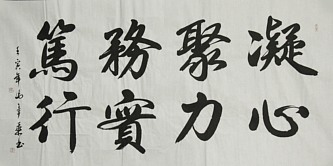 凝心
聚力
務實
篤行
壬寅年